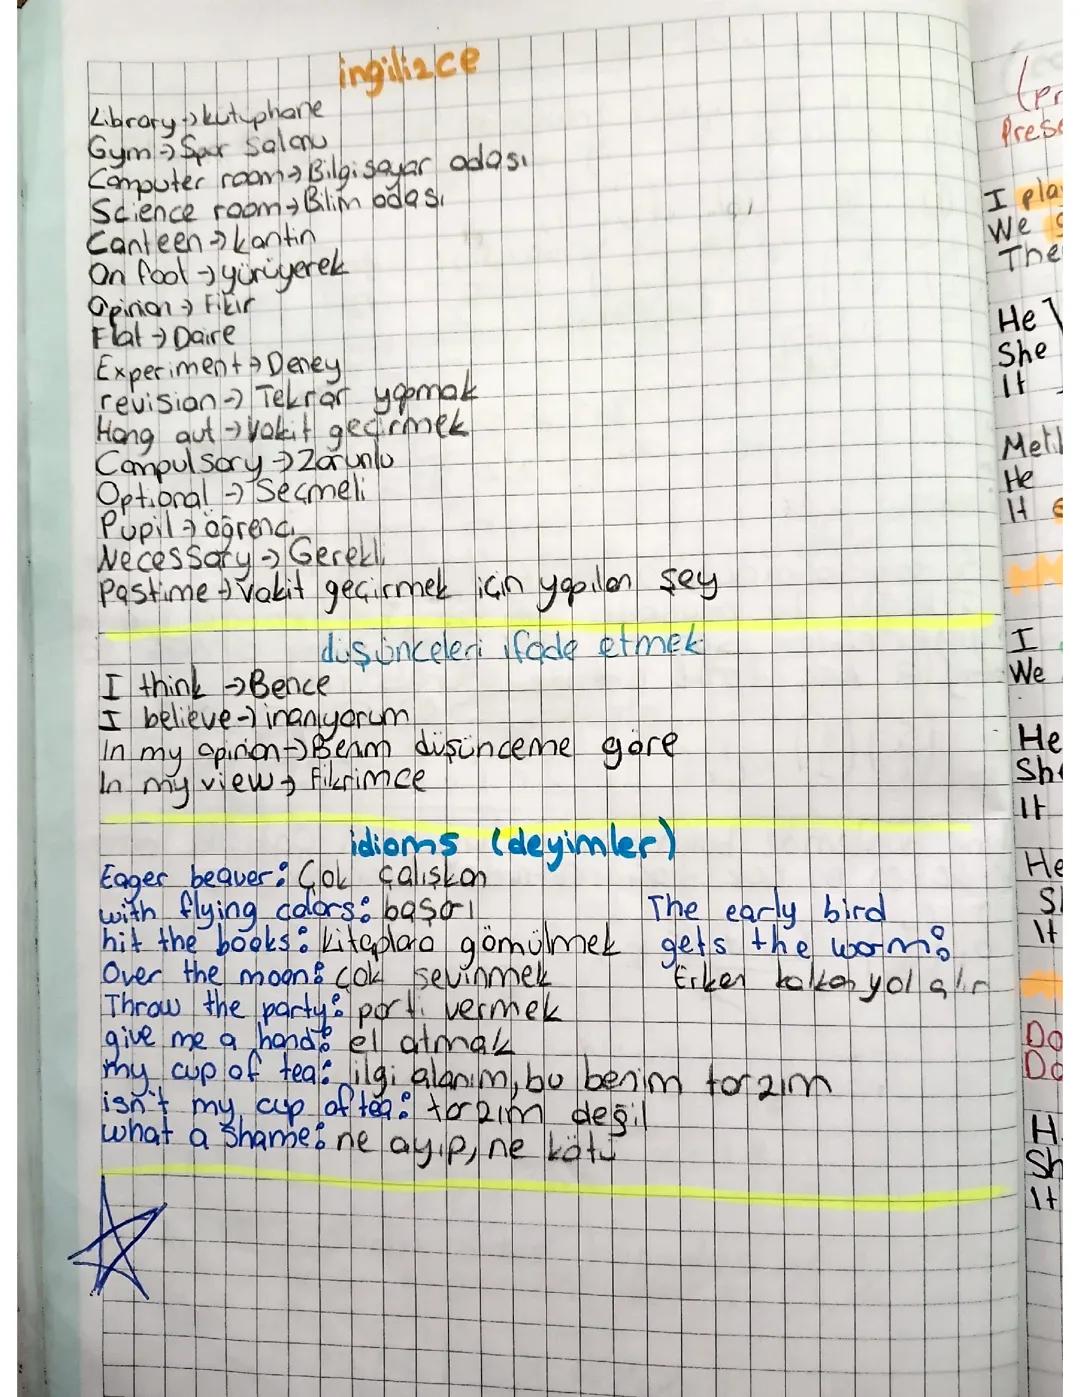 ingilizce
Library → kutuphane
Gym → Spor Salonu
Computer room → Bilgisayar odası
Science room → Bilim odası
Canteen → kantin
On foot → yürüyerek
Opinion → Fikir
Flat → Daire
Experiment → Deney
revision → Tekrar yapmak
Hang out → Vakit geçirmek
Compulsory → Zorunlu
Optional → Seçmeli
Pupil → öğrenci
Necessary → Gerekli
Pastime → Vakit geçirmek için yapılan şey
düşünceleri ifade etmek
I think → Bence
I believe → inanıyorum
In my opinion → Benim düşünceme göre
In my view → Fikrimce
idioms (deyimler)
Eager beaver: Çok çalışkan
with flying colors: başarı
hit the books: kitaplara gömülmek
Over the moon: çok sevinmek
Throw the party: parti vermek
give me a hand: el atmak
my cup of tea: ilgi alanım, bu benim tarzım
isn't my cup of tea: tarzım değil
what a shame: ne ayıp, ne kötü
The early bird
gets the worm:
Erken kalkan yol alır
(pr
Prese
I pla
We
The
He
She
It
He
It
I
We
He
Sh
It
He
S
It
Do
Do
H
Sh
It